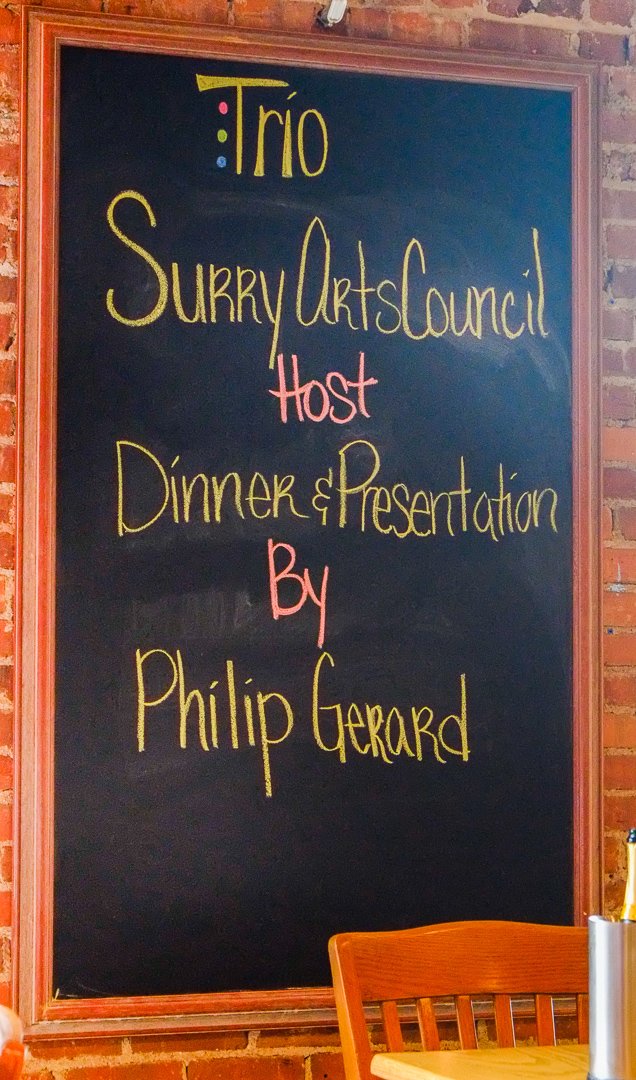 Trio
Surry Arts Council
Host
Dinner & Presentation
By
Philip Gerard